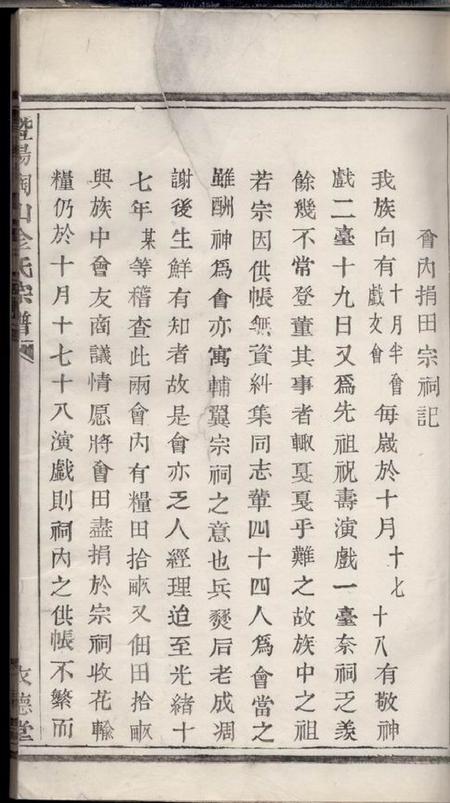 會內捐田宗祠記
我族向有十月半會戲文會每歲於十月十七十八有敬神
戲二臺十九日又爲先祖祝壽演戲一臺柰祠乏羨
餘幾不常登董其事者輙戛戛乎難之故族中之祖
若宗因供帳無資糾集同志輩四十四人爲會當之
雖酬神爲會亦寓輔翼宗祠之意也兵燹后老成凋
謝後生鮮有知者故是會亦乏人經理迨至光緒十
七年某等稽查此兩會內有糧田拾畝又佃田拾畝
與族中會友商議情愿將會田盡捐於宗祠收花輸
糧仍於十月十七十八演戲則祠內之供帳不繁而
暨陽陶山金氏宗譜
友德堂